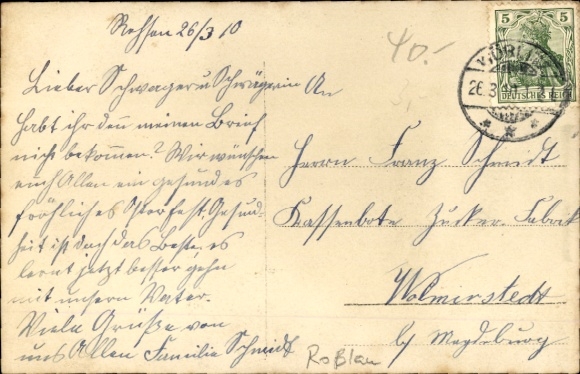 Rehsen 26/3 10
40.-
Lieber Schwager u Schwägerin
habt ihr den meinen Brief
nicht bekommen? Wir wünschen
euch Allen ein gesundes
fröhliches Osterfest. Gesund-
heit ist doch das Beste. es
lernt jetzt besser gehn
mit unsern Vater.
Viele Grüße von
uns Allen Familie Schmidt
Roßlau
An
Herrn Franz Schmidt
Kassenbote Zucker-Fabrik
Wolmirstedt
b/ Magdeburg
5 5
DEUTSCHES REICH
WÖRLITZ
26.3.10